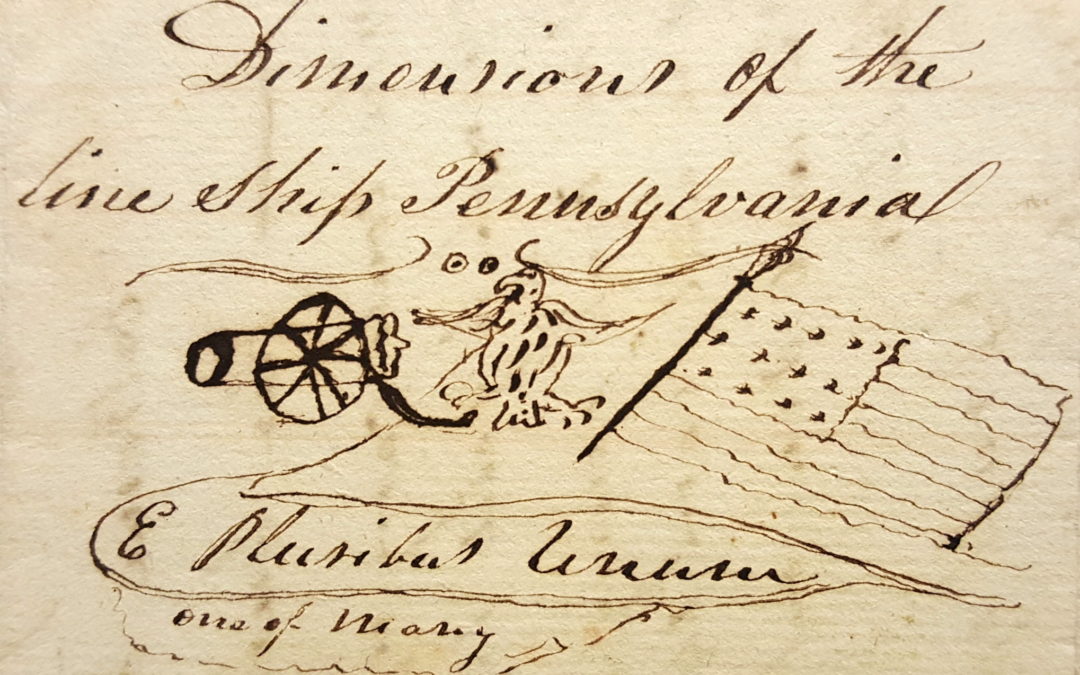 Dimensions of the
line ship Pennsylvania
E Pluribus Unum
one of many